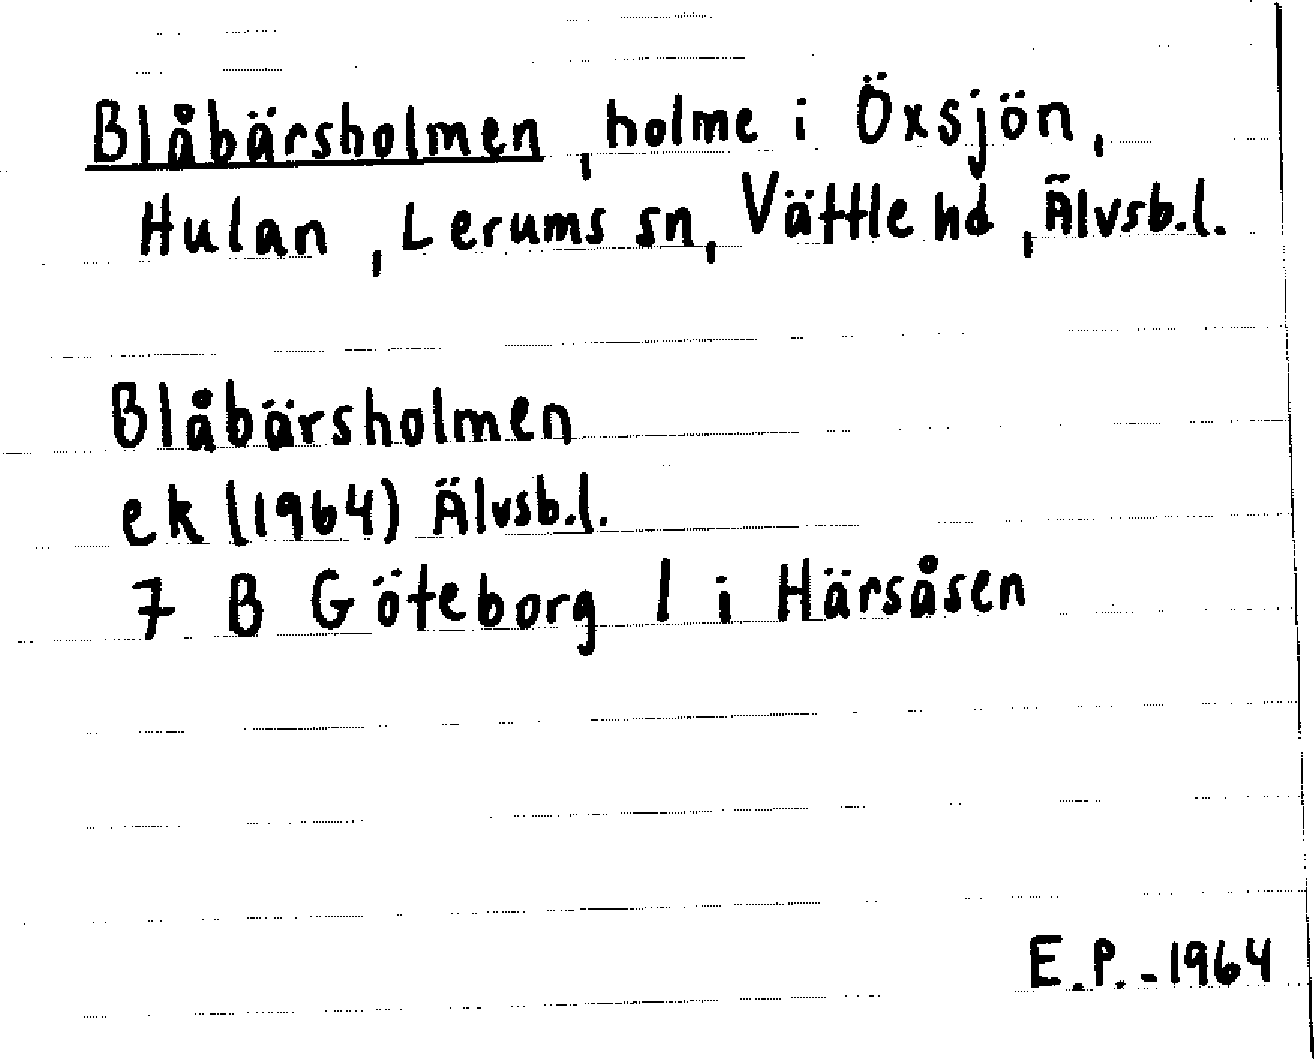 Blåbärsholmen, holme i Öxsjön,
Hulan, Lerums sn, Vättle hd, Älvsb.l.
Blåbärsholmen
ek (1964) Älvsb.l.
7 B Göteborg 1 i Härsåsen
E.P.-1964